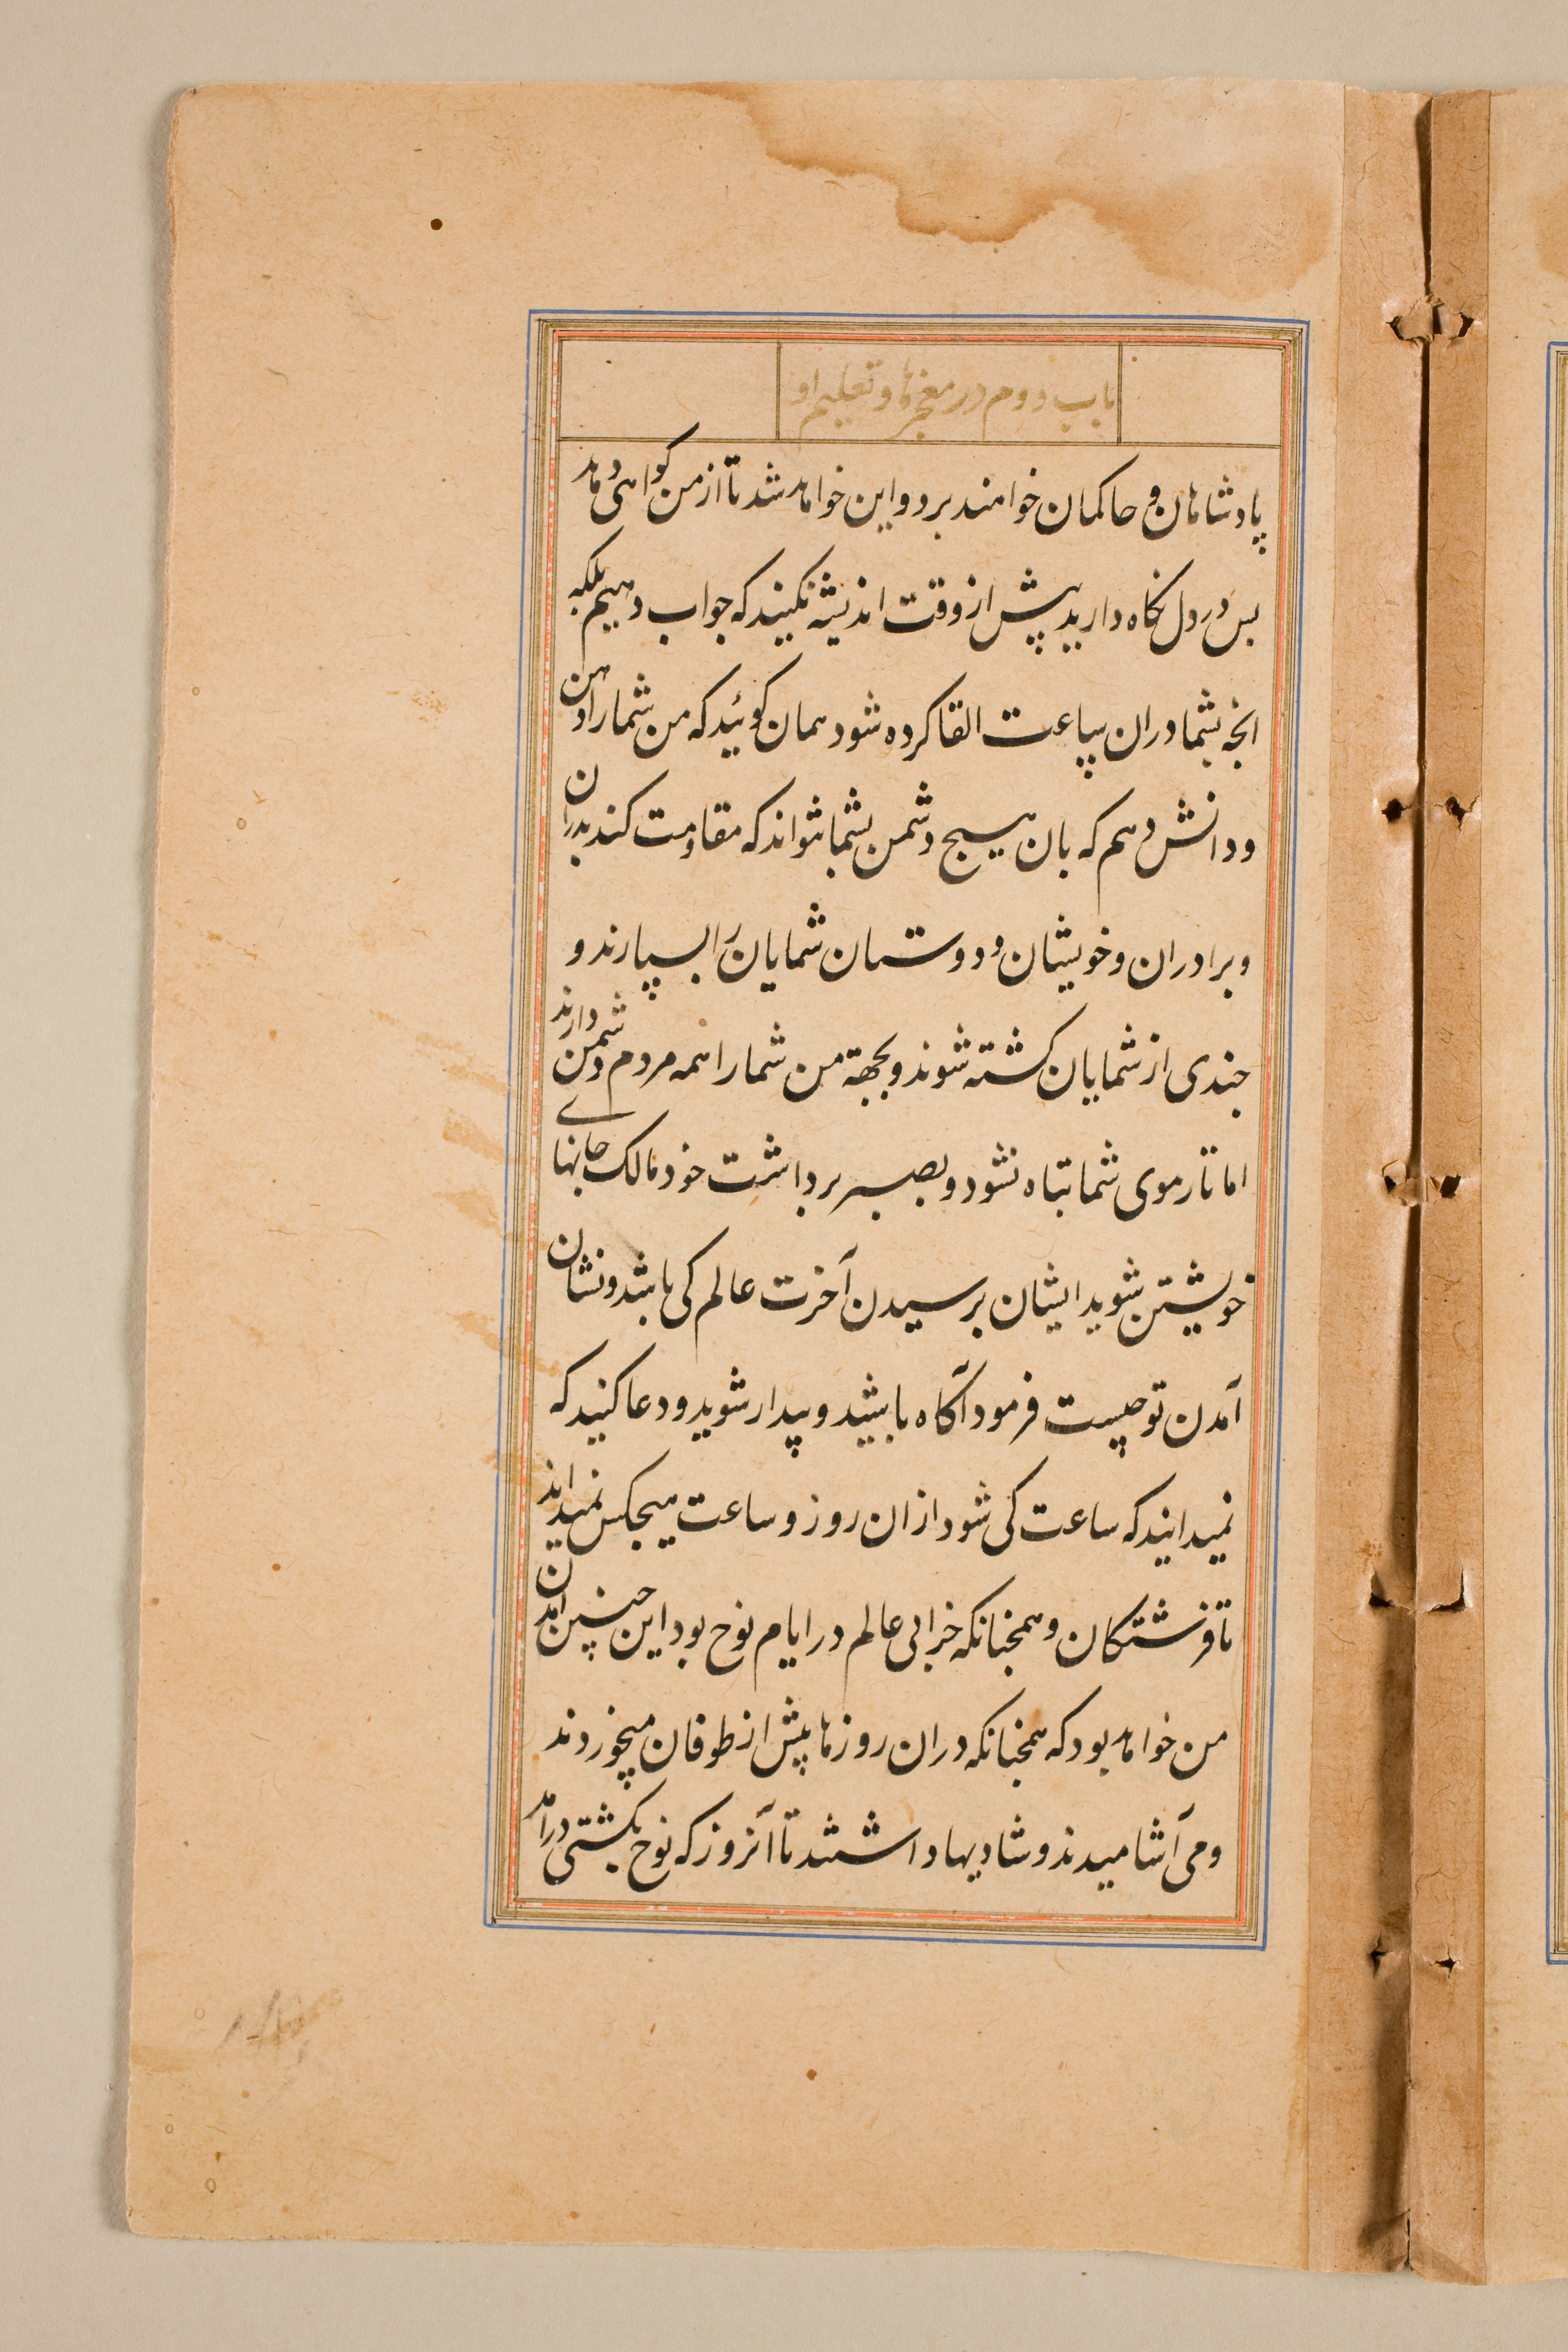 باب دوم در معجزها و تعلیم او
پادشاهان و حاکمان خواهند برد و این خواهد شد تا از من کواهی دهاد
بس در دل نکاه دارید پیش از وقت اندیشه نکنید که جواب دهیم بلکه
انچه بشما دران ساعت القا کرده شود همان کوئید که من شما را دهن
و دانش دهم که بان هیچ دشمن بشما نتواند که مقاومت کند پدران
و برادران و خویشان و دوستان شمایان را بسپارند و
جندی از شمایان کشته شوند و بجهة من شما را همه مردم دشمن دارند
اما تار موی شما تباه نشود و بصبر برداشت خود مالک جانهای
خویشتن شوید ایشان پرسیدن آخرت عالم کی باشد و نشان
آمدن تو چیست فرمود آکاه باشید و بیدار شوید و دعا کنید که
نمیدانید که ساعت کی شود از ان روز و ساعت هیچکس نمیداند
تا فرشتکان و همچنانکه خرابی عالم در ایام نوح بود این چنین آمدن
من خواهد بود که همچنانکه دران روزها پیش از طوفان میخوردند
و می آشامیدند و شادیها داشتند تا آنروز که نوح بکشتی درآمد